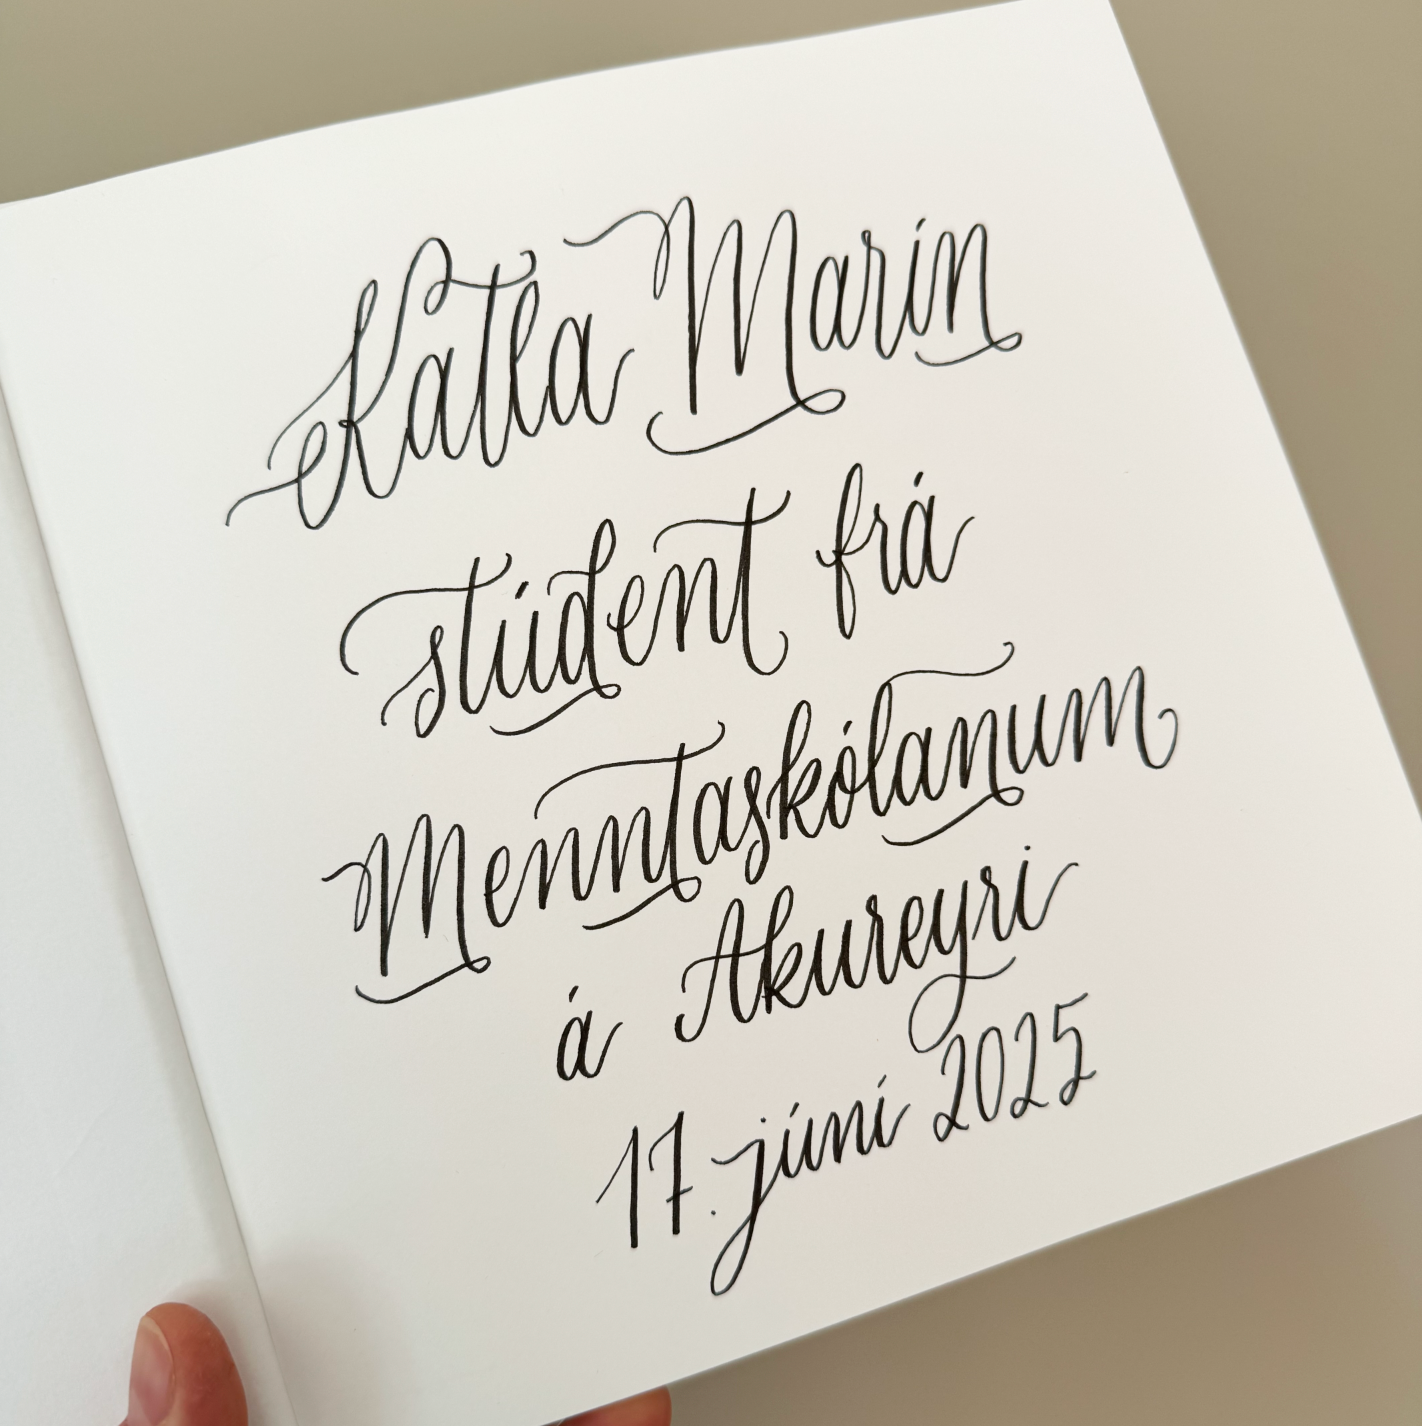 Katla Marín
stúdent frá
Menntaskólanum
á Akureyri
17. júní 2025